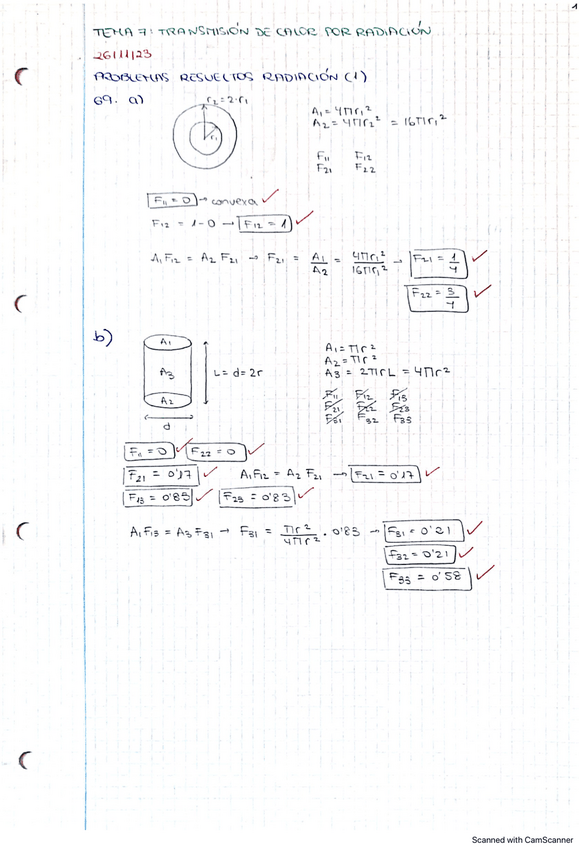 1
TEMA 7: TRANSMISIÓN DE CALOR POR RADIACIÓN
26/11/23
PROBLEMAS RESUELTOS RADIACIÓN (1)
69. a)
r₂=2·r₁
r₁
A₁ = 4πr₁²
A₂ = 4πr₂² = 16πr₁²
F₁₁ F₁₂
F₂₁ F₂₂
F₁₁ = 0 → convexa
F₁₂ = 1-0 → F₁₂ = 1
A₁F₁₂ = A₂F₂₁ → F₂₁ = A₁/A₂ = 4πr₁²/16πr₁² → F₂₁ = 1/4
F₂₂ = 3/4
b)
A₁
A₃
A₂
d
L = d = 2r
A₁ = πr²
A₂ = πr²
A₃ = 2πrL = 4πr²
F₁₁ F₁₂ F₁₃
F₂₁ F₂₂ F₂₃
F₃₁ F₃₂ F₃₃
F₁₁ = 0 F₂₂ = 0
F₂₁ = 0'17 A₁F₁₂ = A₂F₂₁ → F₂₁ = 0'17
F₁₃ = 0'83 F₂₃ = 0'83
A₁F₁₃ = A₃F₃₁ → F₃₁ = πr²/4πr² · 0'83 → F₃₁ = 0'21
F₃₂ = 0'21
F₃₃ = 0'58
Scanned with CamScanner